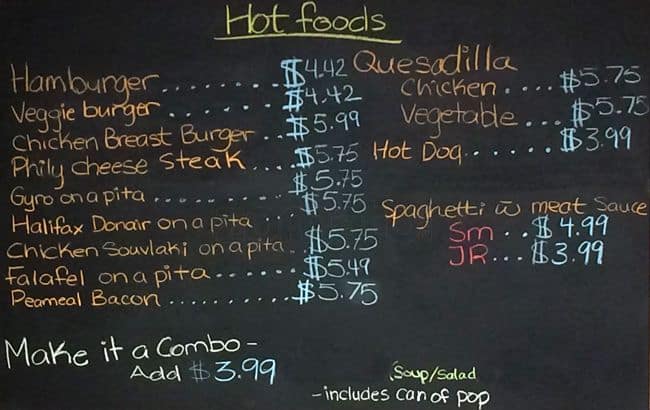 Hot foods
Hamburger....... $4.42
Veggie burger....... $4.42
Chicken Breast Burger.. $5.99
Phily cheese Steak.... $5.75
Gyro on a pita......... $5.75
Halifax Donair on a pita... $5.75
Chicken Souvlaki on a pita.. $5.75
Falafel on a pita........ $5.49
Peameal Bacon.......... $5.75
Quesadilla
Chicken.... $5.75
Vegetable... $5.75
Hot Dog...... $3.99
Spaghetti w̄ meat Sauce
Sm.. $4.99
JR... $3.99
Make it a Combo -
Add $3.99
Soup/Salad
- includes can of pop